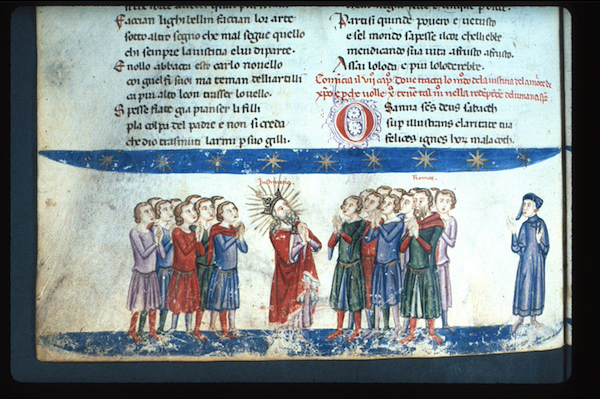 Faccian lighibellin faccian lor arte
sotto altro segno che mal segue quello
chi sempre la iusticia e lui diparte.
E nollo abbacti este carlo novello
coi guelfi suoi ma teman delli artilli
ca piu alto leon trasser lovello
Spesse fiate gia pianser li filli
pla colpa del padre e non si creda
che dio trasmuti larmi p suo gilli.
Partisi quinde povero e vetusto
e sel mondo sapesse il cor chelli ebbe
mendicando sua vita afrusto afrusto.
Assai loloda e piu lolodrebbe.
Comincia il vii cap. dove tracta lo dela iustitia del amore de
xpo e pche volle nella
Osanna scs deus sabaoth
sup illustrans claritate tua
felices ignes hor malacoth.
Romeo